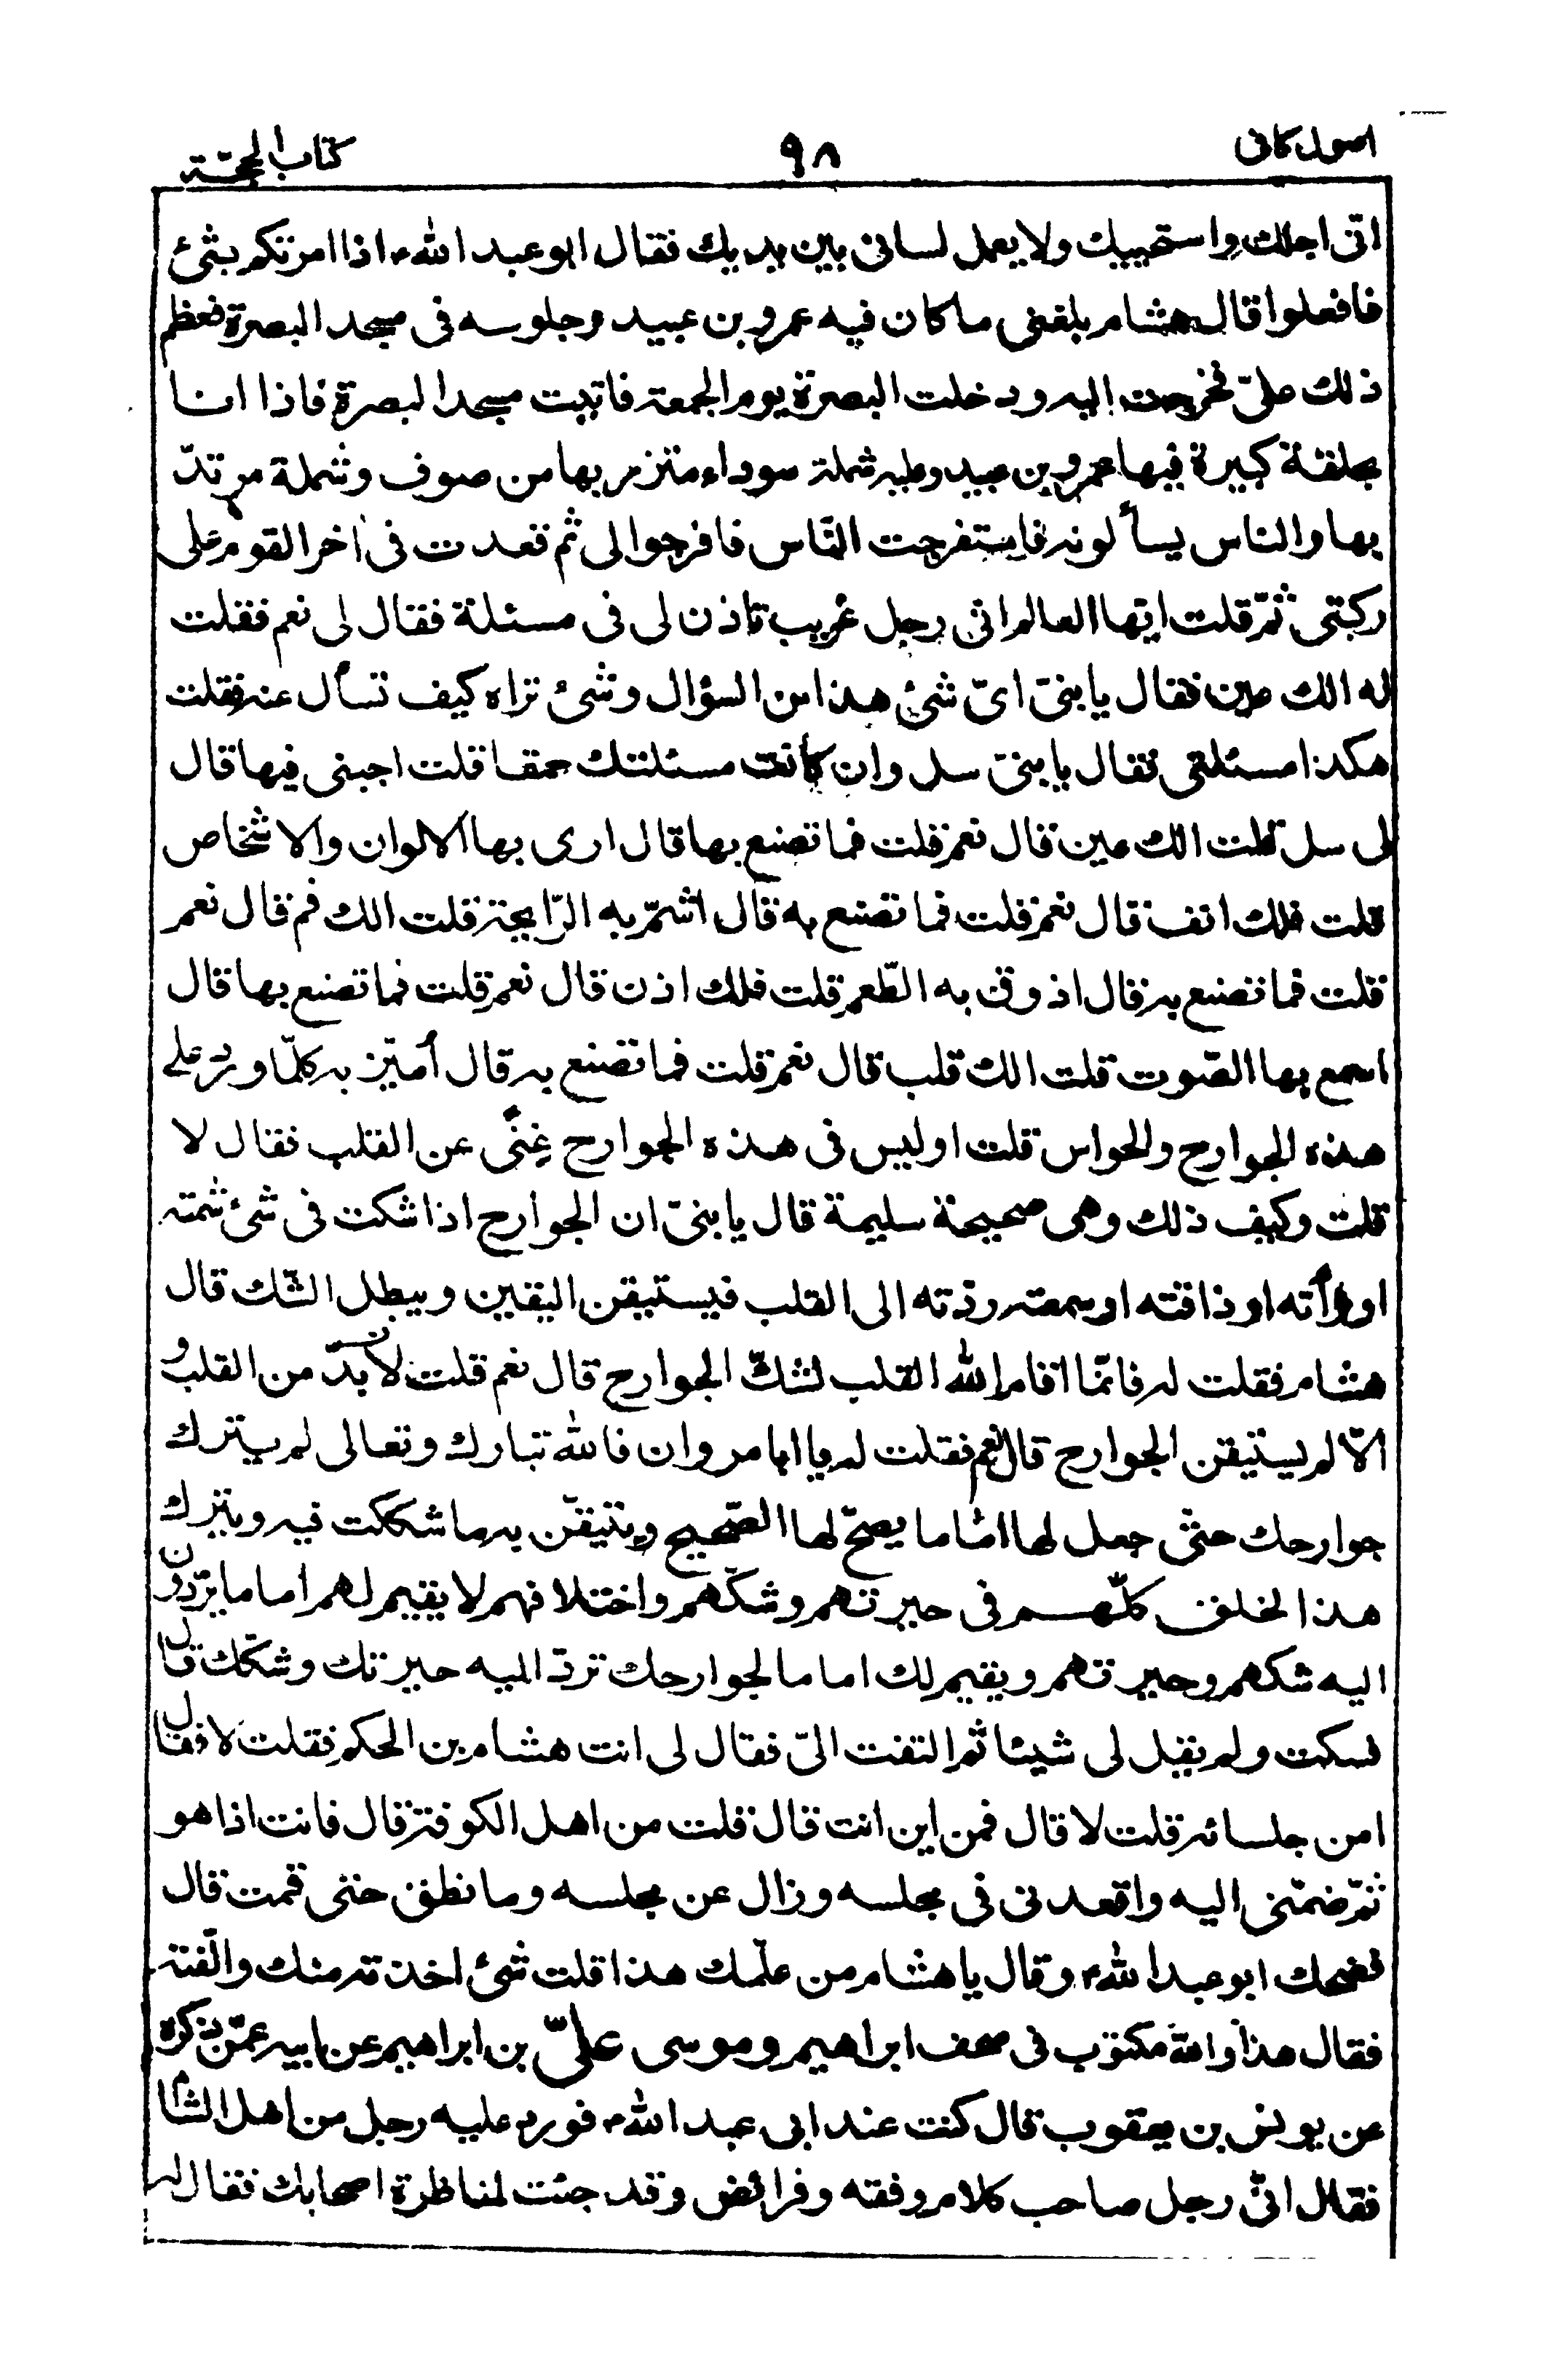 اصول كافى ٩٨ كتاب الحجّة
انّى اجلك واستحييك ولا يعمل لسانى بين يديك فقال ابو عبد الله ع اذا امرتكم بشئ
فافعلوا قال هشام بلغنى ما كان فيه عمرو بن عبيد وجلوسه فى مسجد البصرة فعظم
ذلك علىّ فخرجت اليه ودخلت البصرة يوم الجمعة فاتيت مسجد البصرة فاذا انا
بحلقة كبيرة فيها عمرو بن عبيد وعليه شملة سوداء متزر بها من صوف وشملة مرتدّ
بها والناس يسألونه فاستفرجت النّاس فافرجوا لى ثم قعدت فى اخر القوم على
ركبتى ثمّ قلت ايّها العالم انى رجل غريب تاذن لى فى مسئلة فقال لى نعم فقلت
له الك عين فقال يا بنىّ اىّ شئ هذا من السؤال وشئ تراه كيف تسأل عنه فقلت
هكذا مسئلتى فقال يا بنىّ سل وان كانت مسئلتك حمقا قلت اجبنى فيها قال
لى سل قلت الك عين قال نعم قلت فما تصنع بها قال ارى بها الالوان والاشخاص
قلت فلك انف قال نعم قلت فما تصنع به قال اشمّ به الرّايحة قلت الك فم قال نعم
قلت فما تصنع به قال اذوق به الطّعم قلت فلك اذن قال نعم قلت فما تصنع بها قال
اسمع بها الصّوت قلت الك قلب قال نعم قلت فما تصنع به قال أميّز به كلّما ورد على
هذه الجوارح والحواس قلت اوليس فى هذه الجوارح غِنًى عن القلب فقال لا
قلت وكيف ذلك وهى صحيحة سليمة قال يا بنىّ ان الجوارح اذا شكت فى شئ شمته
او رأته او ذاقته او سمعته ردّته الى القلب فيستيقن اليقين ويبطل الشّك قال
هشام فقلت له فانّما اقام الله القلب لشكّ الجوارح قال نعم قلت لابدّ من القلب و
الّا لم يستيقن الجوارح قال نعم فقلت له يا ابا مروان فالله تبارك وتعالى لم يترك
جوارحك حتى جعل لها امٰاما يصحّ لها الصّحيح ويتيقّن به ما شككت فيه ويترك
هذا الخلق كلّهم فى حيرتهم وشكّهم واختلافهم لا يقيم لهم اماما يردّون
اليه شكهم وحيرتهم ويقيم لك اماما لجوارحك تردّ اليه حيرتك وشكّك قال
فسكت ولم يقل لى شيئا ثم التفت الىّ فقال لى انت هشام بن الحكم فقلت لا فقال
امن جلسائه قلت لا قال فمن اين انت قال قلت من اهل الكوفة قال فانت اذا هو
ثمّ ضمّنى اليه واقعدنى فى مجلسه وزال عن مجلسه وما نطق حتى قمت قال
فضحك ابو عبد الله ع وقال يا هشام من علّمك هذا قلت شئ اخذته منك والّفته
فقال هذا والله مكتوب فى صحف ابراهيم وموسى علىّ بن ابراهيم عن ابيه عمّن ذكره
عن يونس بن يعقوب قال كنت عند ابى عبد الله ع فورد عليه رجل من اهل الشام
فقال انّى رجل صاحب كلام وفقه وفرائض وقد جئت لمناظرة اصحابك فقال له